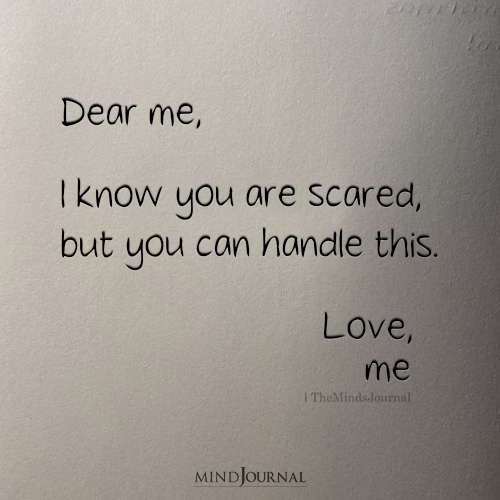 Dear me,
I know you are scared,
but you can handle this.
Love,
me
| TheMindsJournal
MINDJOURNAL